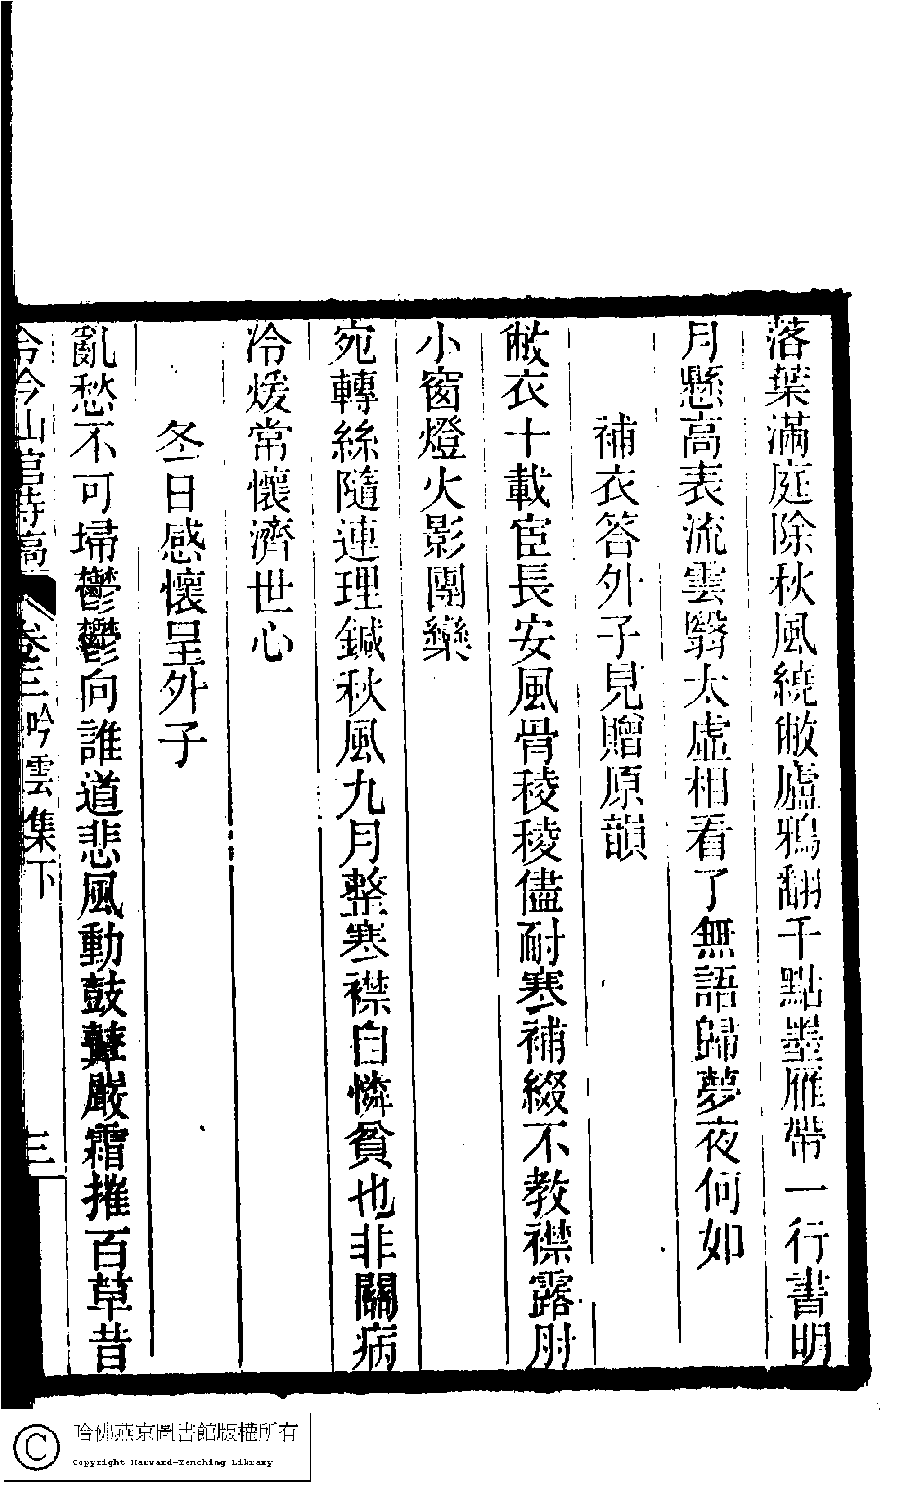 落葉滿庭除秋風繞敝廬鴉翻千點墨雁帶一行書明
月懸高表流雲翳太虛相看了無語歸夢夜何如
補衣答外子見贈原韻
敝衣十載宦長安風骨稜稜儘耐寒補綴不教襟露肘
小窗燈火影團欒
宛轉絲隨連理鍼秋風九月整寒襟自憐貧也非關病
冷煖常懷濟世心
冬日感懷呈外子
亂愁不可埽鬱鬱向誰道悲風動鼓鼙嚴霜摧百草昔
泠泠山館詩稿 卷三吟雲集下 三
哈佛燕京圖書館版權所有
Copyright Harvard-Yenching Library